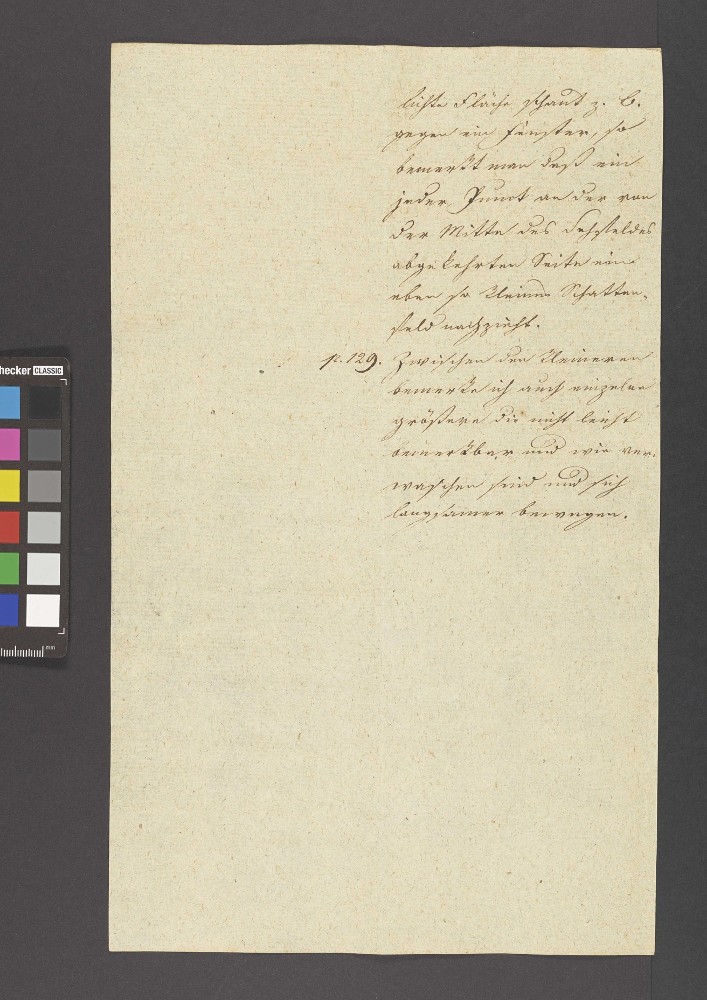 lichte Fläche schaut z. B.
gegen ein Fenster, so
bemerkt man daß ein
jeder Punct an der von
der Mitte des Sehfeldes
abgekehrten Seite eine
eben so kleines Schatten-
feld nachzieht.
p. 129. Zwischen den kleineren
bemerke ich auch einzelne
größere die nicht leicht
bemerkbar und wie ver-
waschen sind und sich
langsamer bewegen.
hecker CLASSIC
mm